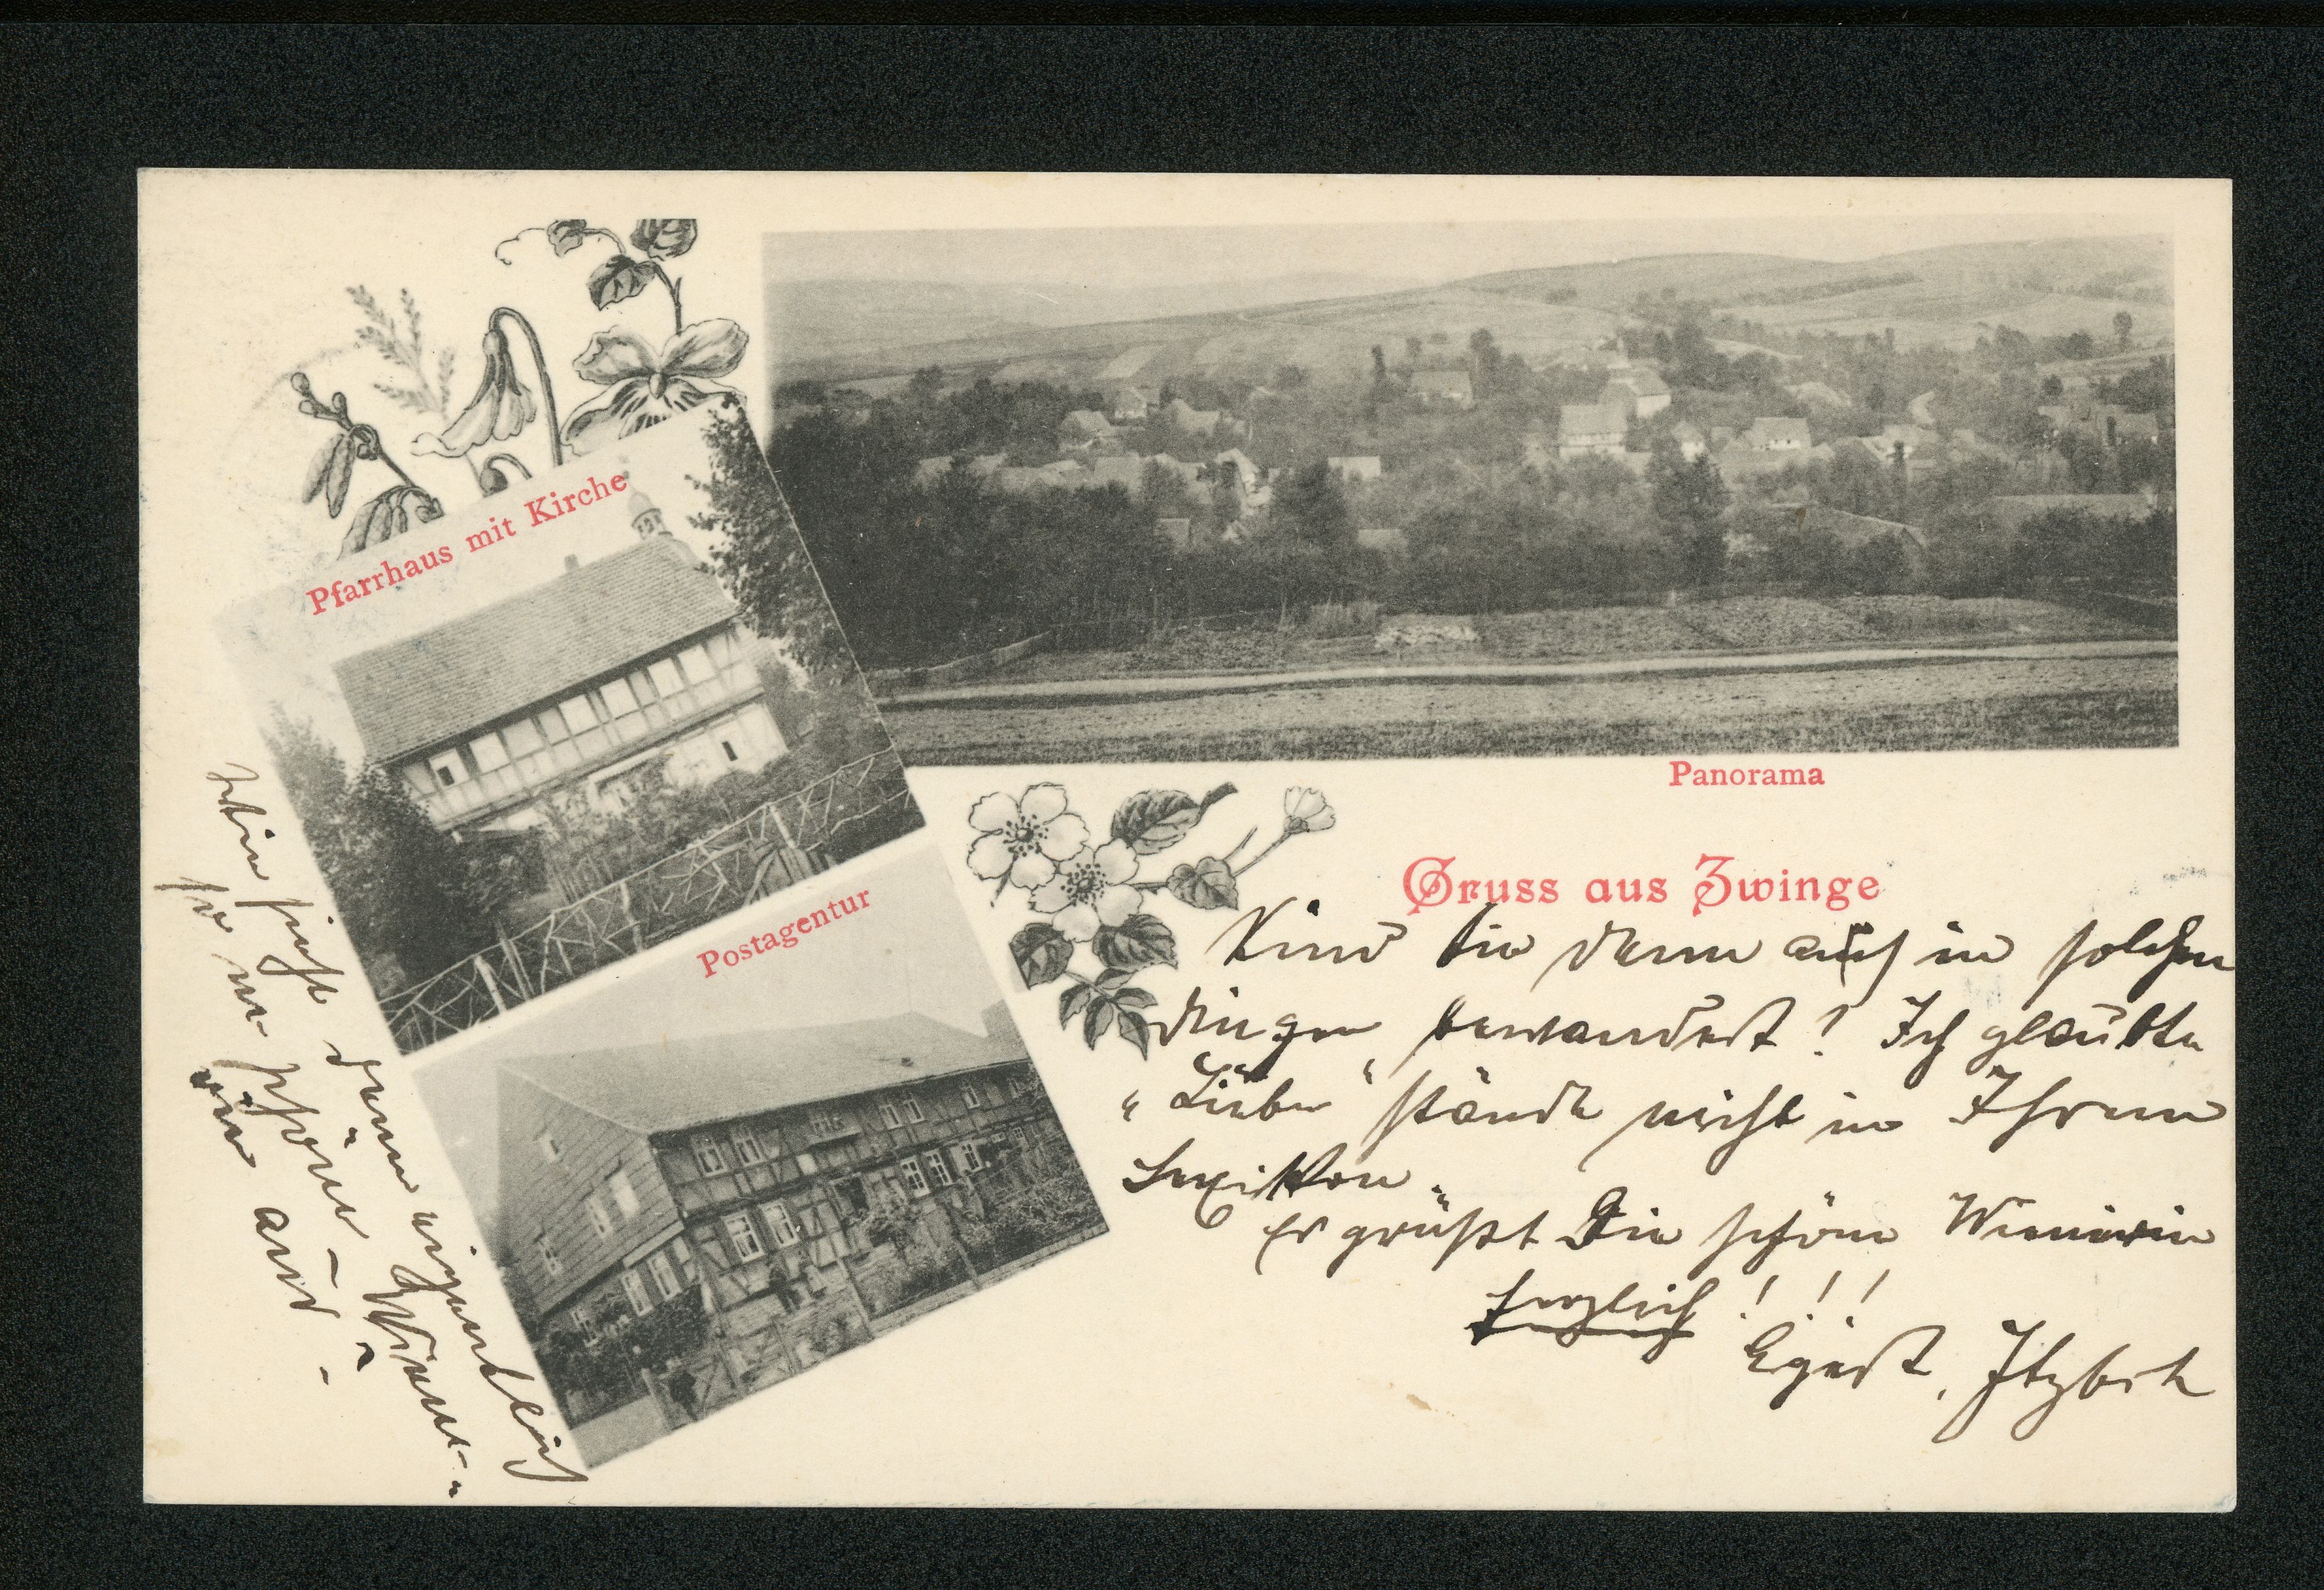 Pfarrhaus mit Kirche
Panorama
Postagentur
Gruss aus Zwinge
Sind Sie denn auch in solchen
Dingen bewandert! Ich glaubte
"Liebe" stände nicht in Ihrem
Lexikon.
Es grüßt Die schöne
herzlich!!!
Wie sieht denn eigentlich
so ne schöne
ein aus